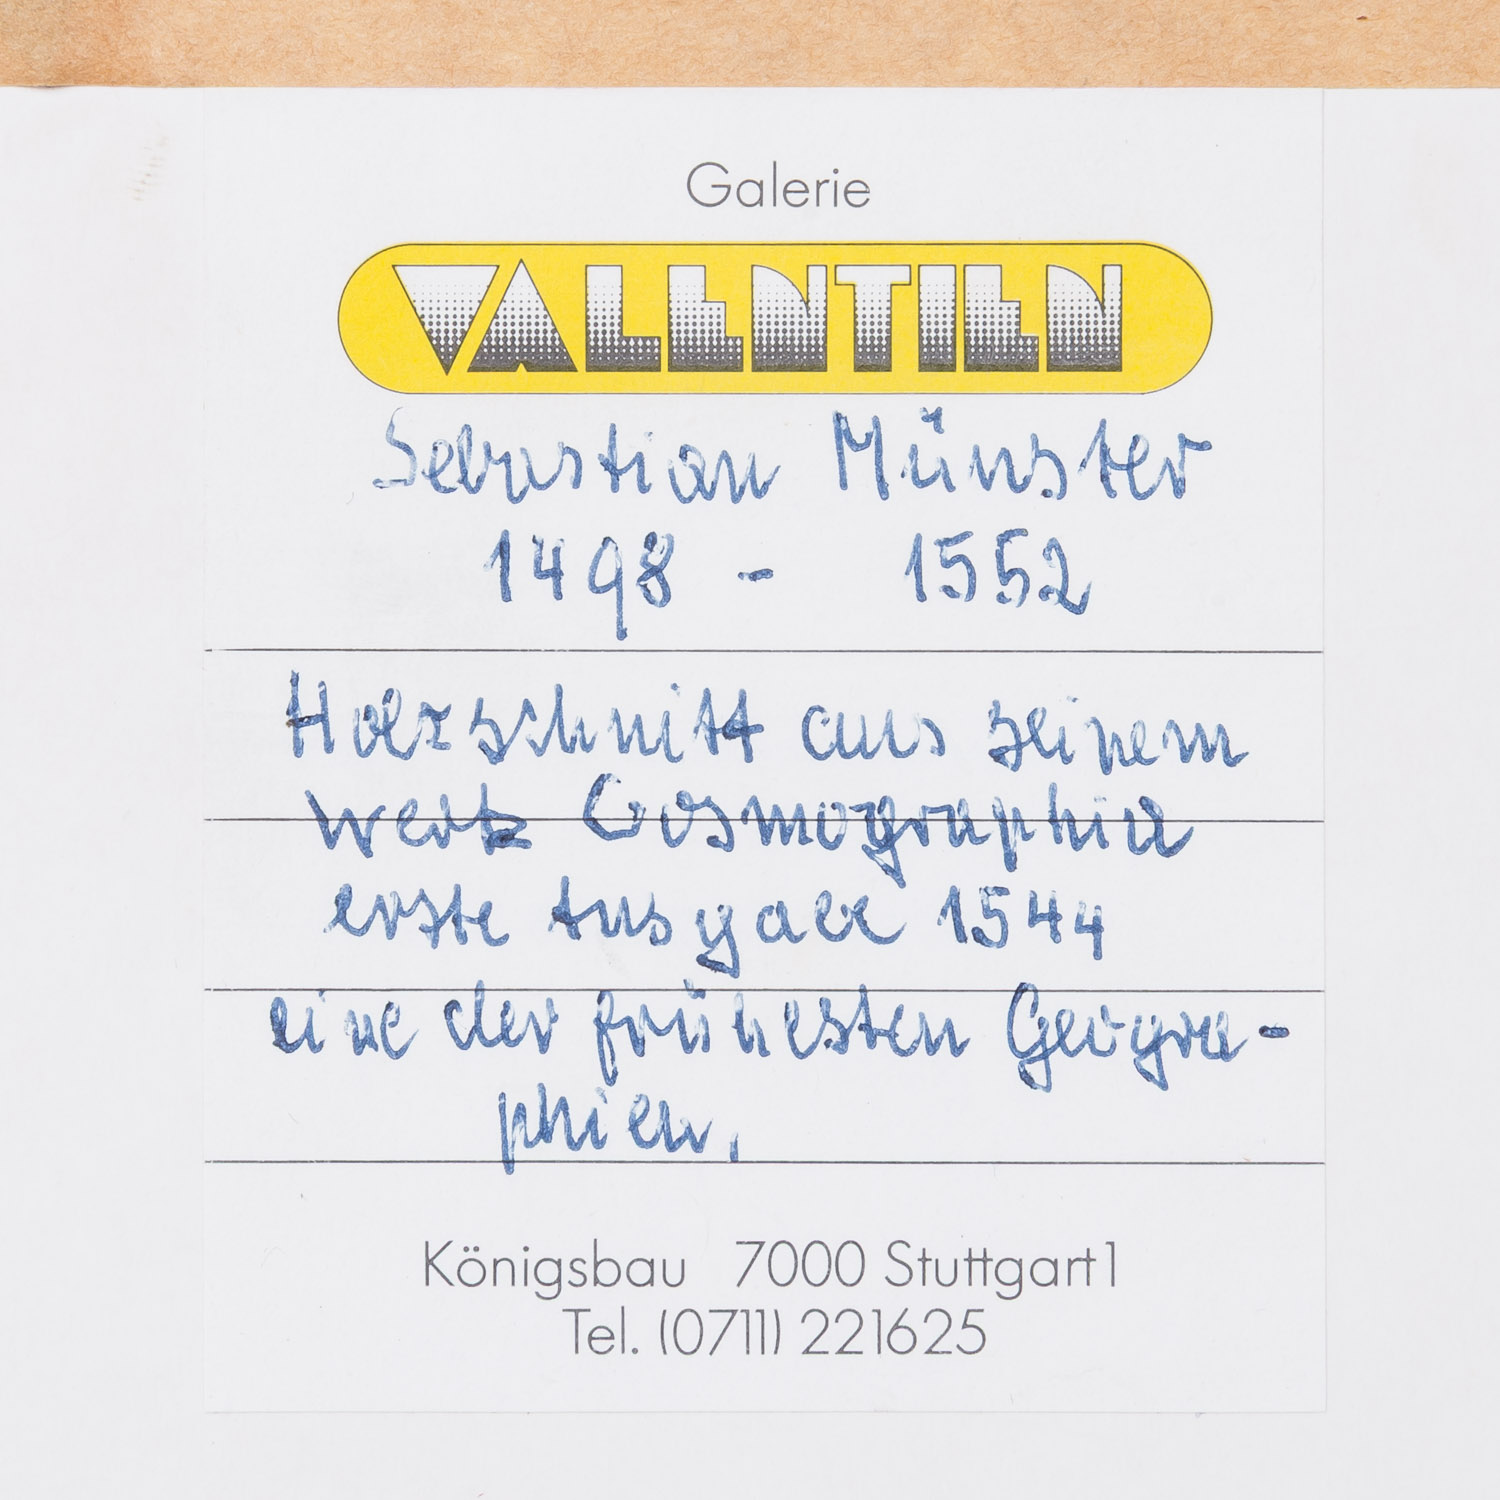 Galerie
VALENTIEN
Sebastian Münster
1498 - 1552
Holzschnitt aus seinem
Werk Cosmographia
erste Ausgabe 1544
eine der frühesten Geogra-
phien.
Königsbau 7000 Stuttgart 1
Tel. (0711) 221625